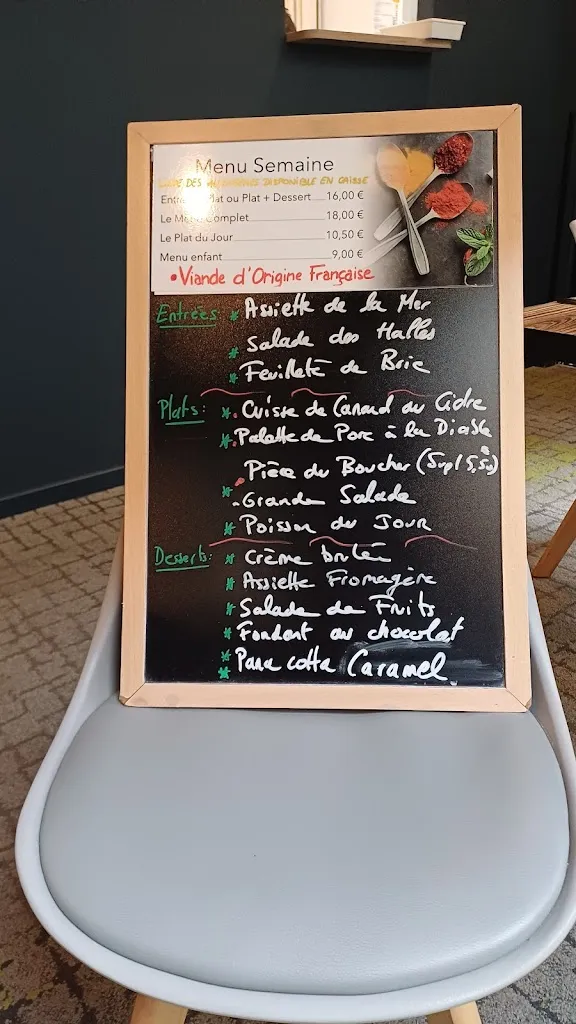 Menu Semaine
DES DISPONIBLE EN CAISSE
Plat ou Plat + Dessert 16,00 €
Le Menu Complet 18,00 €
Le Plat du Jour 10,50 €
Menu enfant 9,00 €
•Viande d'Origine Française
Entrées * Assiette de la Mer
* Salade des Halles
* Feuilleté de Brie
Plats: * Cuisse de Canard au Cidre
* Palette de Porc à la Diable
* Pièce du Boucher (Supl 5,50)
Grande Salade
* Poisson du Jour
Desserts: * Crème brulée
* Assiette Fromagère
* Salade de Fruits
* Fondant au chocolat
* Pana cotta Caramel